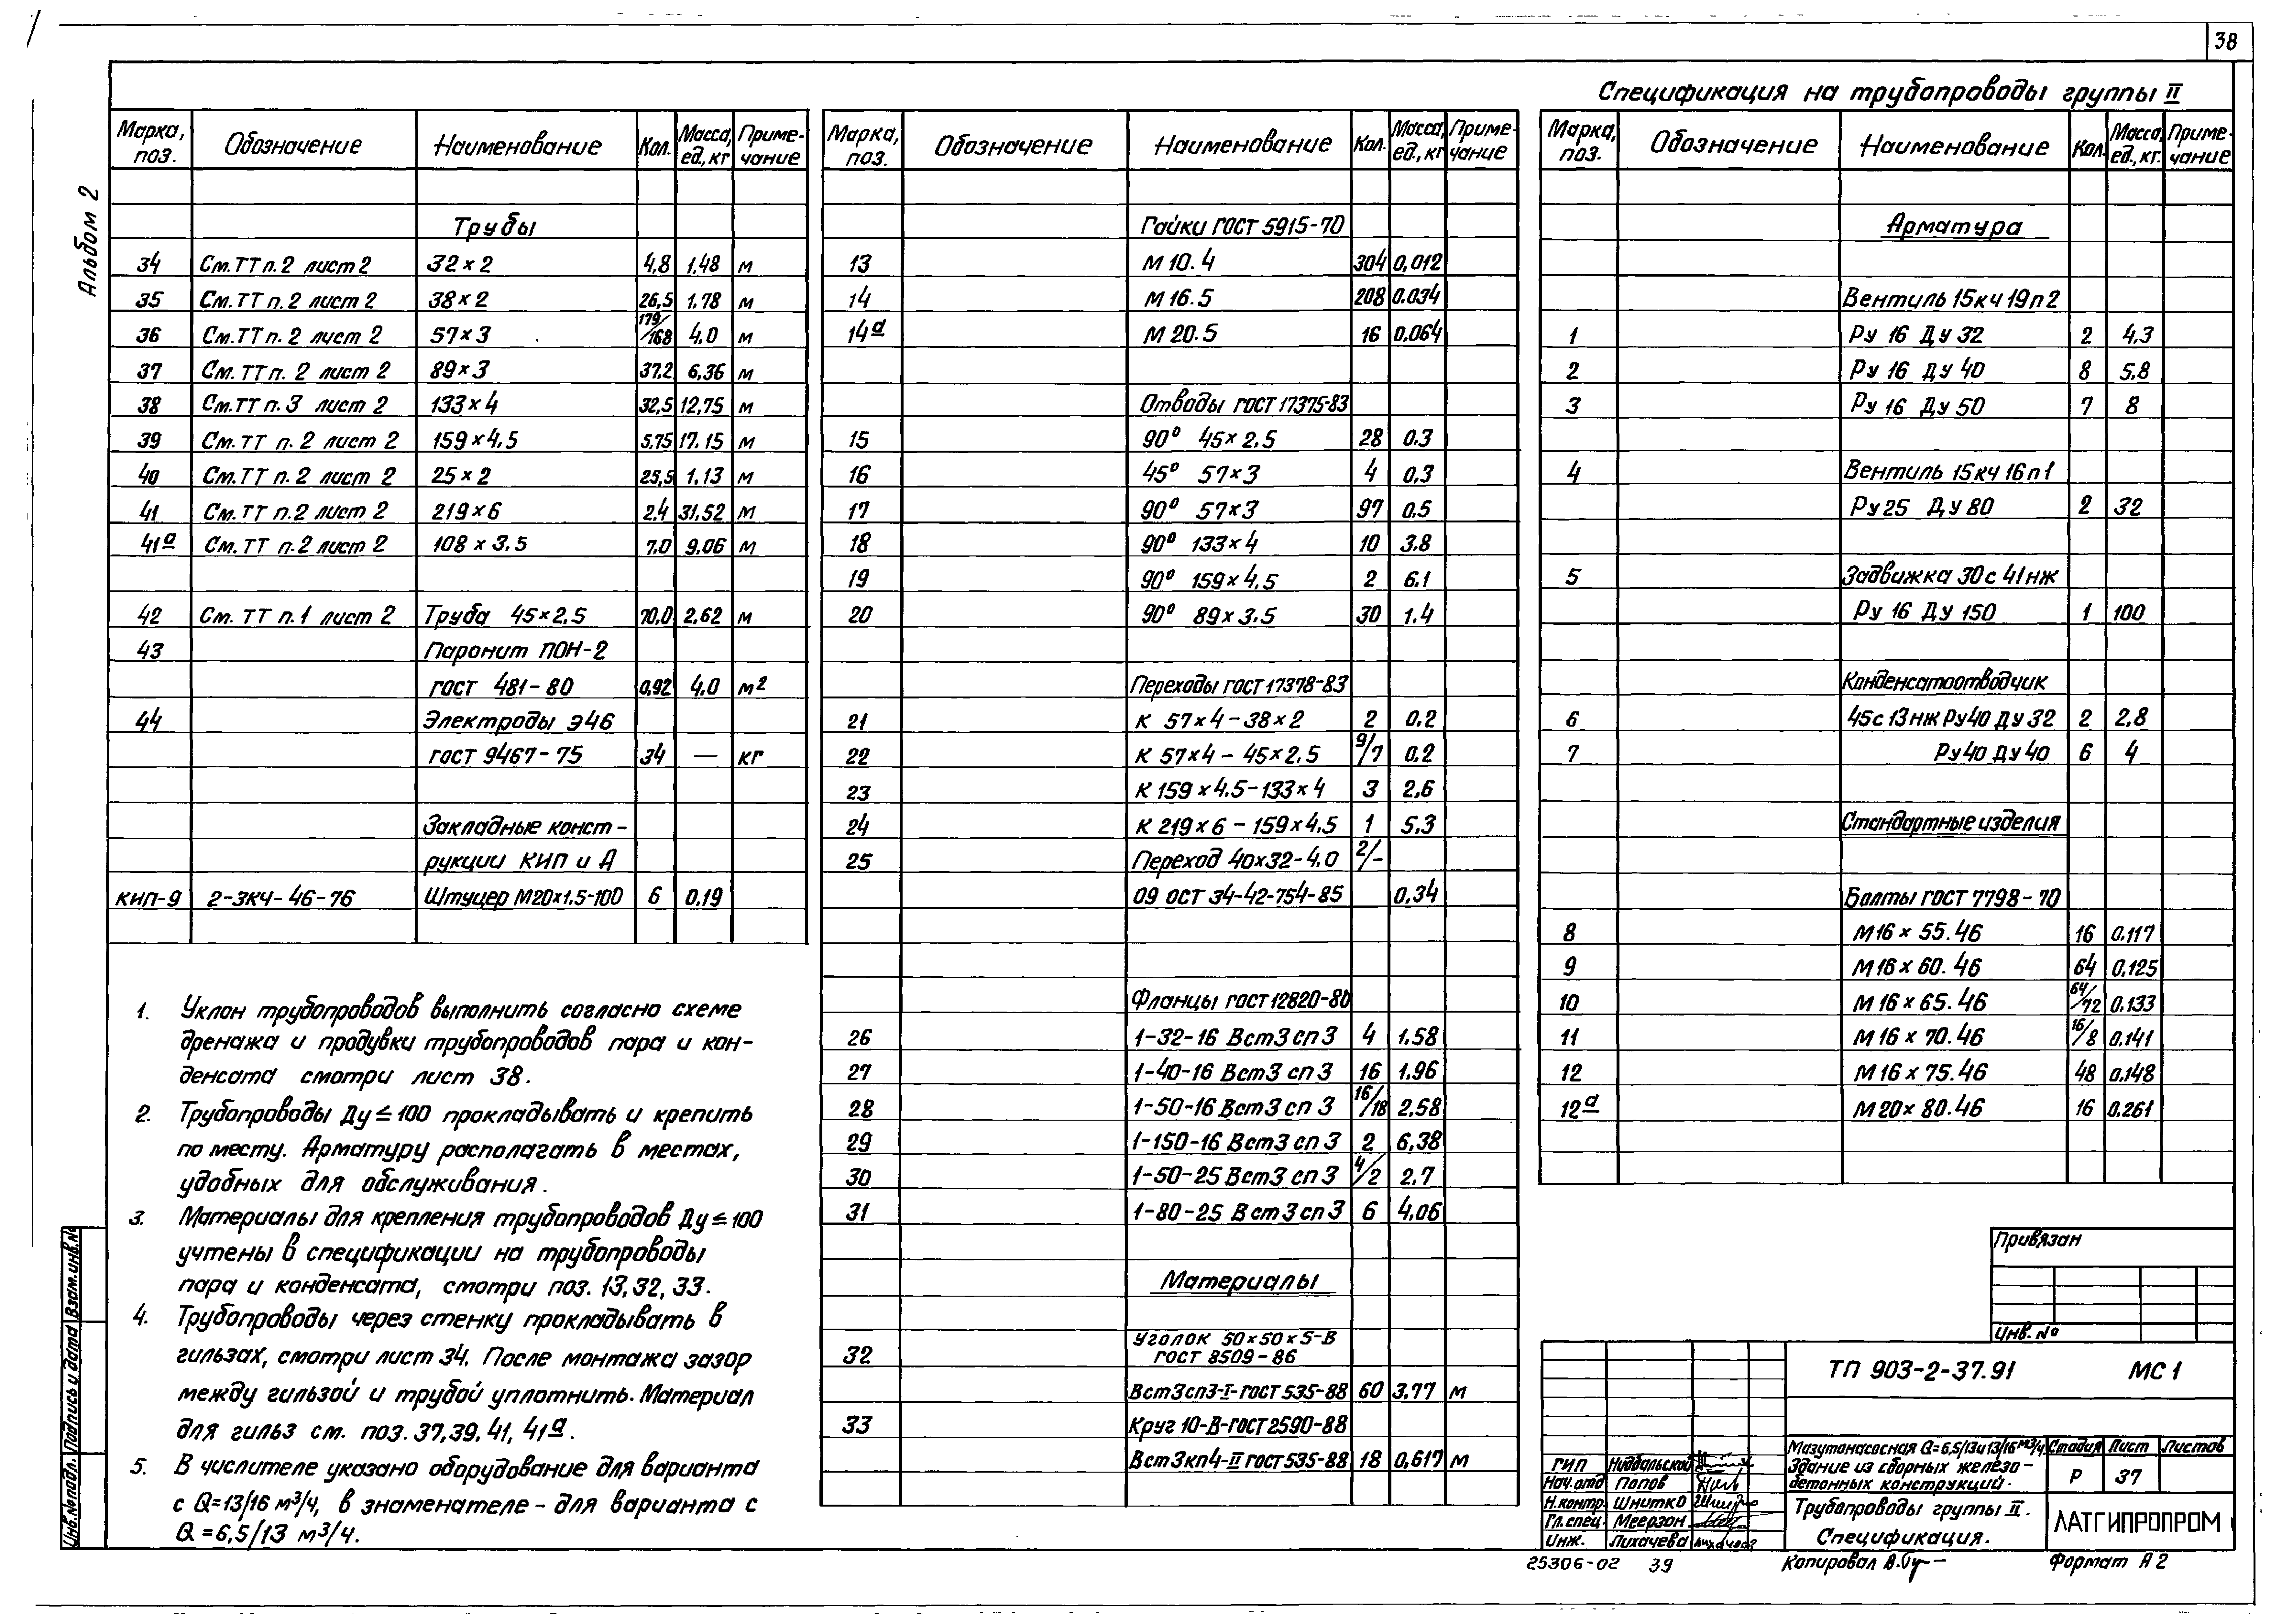 38
Альбом 2
Спецификация на трубопроводы группы II
Марка, поз. Обозначение Наименование Кол. Масса, ед., кг Примечание
Трубы
34 См. ТТ п. 2 лист 2 32×2 4,8 1,48 м
35 См. ТТ п. 2 лист 2 38×2 26,5 1.78 м
36 См. ТТ п. 2 лист 2 57×3 179/168 4,0 м
37 См. ТТ п. 2 лист 2 89×3 37,2 6,36 м
38 См. ТТ п. 3 лист 2 133×4 32,5 12,75 м
39 См. ТТ п. 2 лист 2 159×4,5 5,75 17.15 м
40 См. ТТ п. 2 лист 2 25×2 25,5 1,13 м
41 См. ТТ п. 2 лист 2 219×6 2,4 31,52 м
41а См. ТТ п. 2 лист 2 108×3,5 7,0 9.06 м
42 См. ТТ п. 1 лист 2 Труба 45×2,5 70,0 2,62 м
43 Паронит ПОН-2
ГОСТ 481-80 0,92 4,0 м²
44 Электроды Э46
ГОСТ 9467-75 34 — кг
Закладные конст-
рукции КИП и А
КИП-9 2-3КЧ-46-76 Штуцер М20×1,5-100 6 0,19
1. Уклон трубопроводов выполнить согласно схеме
дренажа и продувки трубопроводов пара и кон-
денсата смотри лист 38.
2. Трубопроводы Ду≤100 прокладывать и крепить
по месту. Арматуру располагать в местах,
удобных для обслуживания.
3. Материалы для крепления трубопроводов Ду≤100
учтены в спецификации на трубопроводы
пара и конденсата, смотри поз. 13, 32, 33.
4. Трубопроводы через стенку прокладывать в
гильзах, смотри лист 34. После монтажа зазор
между гильзой и трубой уплотнить. Материал
для гильз см. поз. 37, 39, 41, 41а.
5. В числителе указано оборудование для варианта
с Q=13/16 м³/ч, в знаменателе - для варианта с
Q=6,5/13 м³/ч.
Марка, поз. Обозначение Наименование Кол. Масса, ед., кг Примечание
Гайки ГОСТ 5915-70
13 М 10. 4 304 0,012
14 М 16. 5 208 0.034
14а М 20. 5 16 0,064
Отводы ГОСТ 17375-83
15 90° 45×2,5 28 0.3
16 45° 57×3 4 0,3
17 90° 57×3 97 0.5
18 90° 133×4 10 3.8
19 90° 159×4,5 2 6.1
20 90° 89×3,5 30 1.4
Переходы ГОСТ 17378-83
21 К 57×4-38×2 2 0.2
22 К 57×4-45×2,5 9/7 0,2
23 К 159×4.5-133×4 3 2,6
24 К 219×6-159×4,5 1 5,3
25 Переход 40×32-4.0 2/-
09 ОСТ 34-42-754-85 0,34
Фланцы ГОСТ 12820-80
26 1-32-16 Вст3сп3 4 1.58
27 1-40-16 Вст3сп3 16 1.96
28 1-50-16 Вст3сп3 16/18 2,58
29 1-150-16 Вст3сп3 2 6,38
30 1-50-25 Вст3сп3 4/2 2,7
31 1-80-25 Вст3сп3 6 4,06
Материалы
32 Уголок 50×50×5-В
ГОСТ 8509-86
Вст3сп3-I-ГОСТ 535-88 60 3,77 м
33 Круг 10-В-ГОСТ 2590-88
Вст3кп4-II ГОСТ 535-88 18 0,617 м
Марка, поз. Обозначение Наименование Кол. Масса, ед., кг. Примечание
Арматура
Вентиль 15кч19п2
1 Ру 16 Ду 32 2 4,3
2 Ру 16 Ду 40 8 5,8
3 Ру 16 Ду 50 7 8
4 Вентиль 15кч16п1
Ру 25 Ду 80 2 32
5 Задвижка 30с41нж
Ру 16 Ду 150 1 100
Конденсатоотводчик
6 45с13нж Ру40 Ду32 2 2,8
7 Ру40 Ду40 6 4
Стандартные изделия
Болты ГОСТ 7798-70
8 М16×55.46 16 0.117
9 М16×60.46 64 0.125
10 М16×65.46 64/72 0.133
11 М16×70.46 16/8 0.141
12 М16×75.46 48 0.148
12а М20×80.46 16 0.261
Привязан
Инв. №
ТП 903-2-37.91 МС 1
Мазутонасосная Q=6,5/13 и 13/16 м³/ч.
Здание из сборных железо-
бетонных конструкций.
Стадия Лист Листов
Р 37
Трубопроводы группы II.
Спецификация.
ЛАТГИПРОПРОМ
ГИП
Нач. отд Попов
Н. контр. Шнитко
Гл. спец. Меерзон
Инж. Лихачева
Инв. № подл. Подпись и дата Взам. инв. №
25306-02 39 Копировал Формат А2